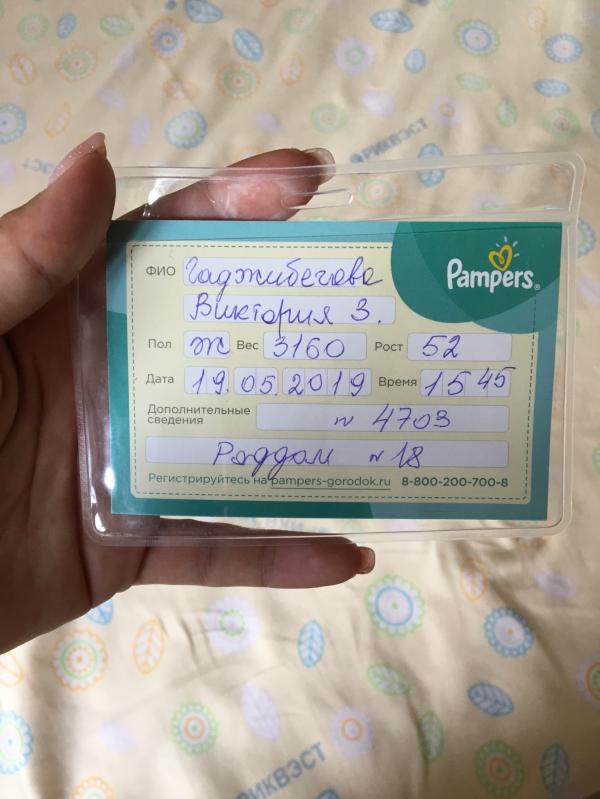 РИКВЭСТ
Pampers
ФИО Гаджибегова
Виктория З.
Пол Ж Вес 3160 Рост 52
Дата 19.05.2019 Время 15 45
Дополнительные сведения № 4703
Роддом № 18
Регистрируйтесь на pampers-gorodok.ru 8-800-200-700-8
РИКВЭСТ